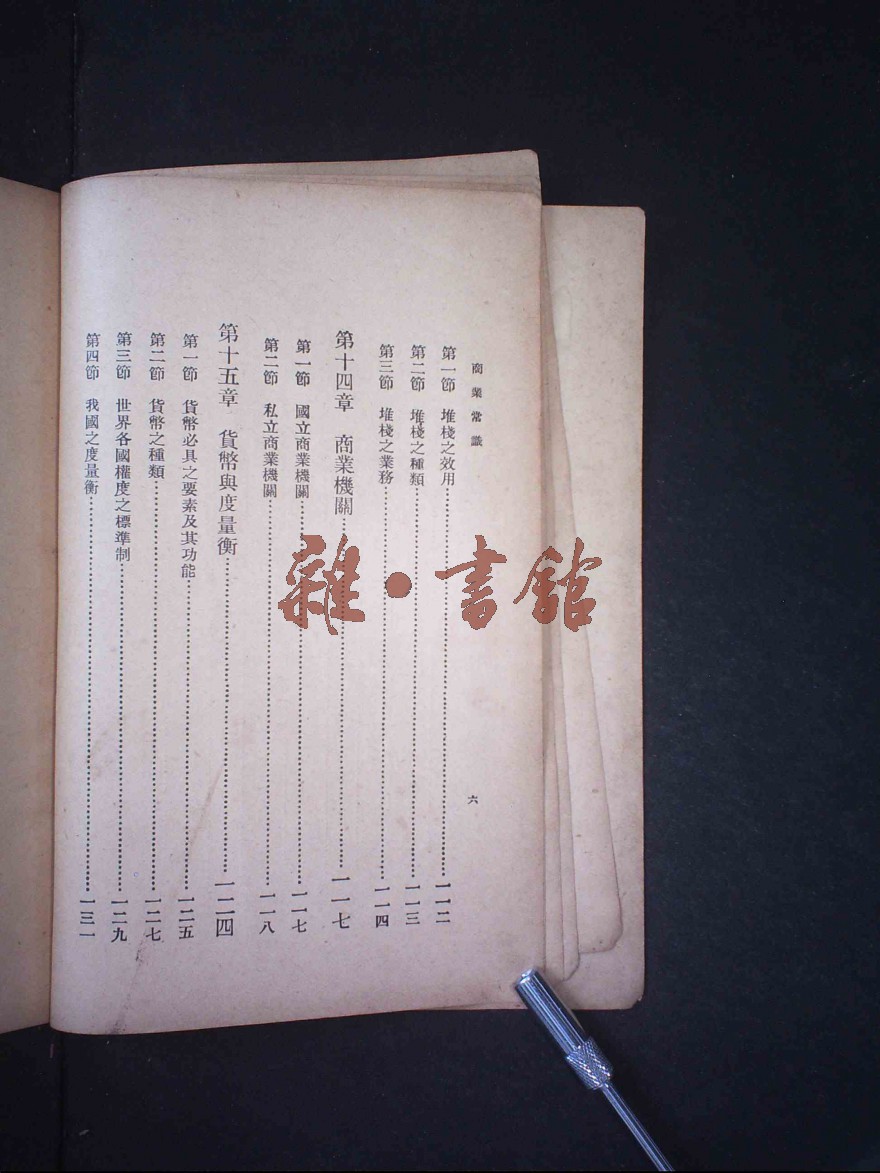 商業常識
六
第一節 堆棧之效用……一一二
第二節 堆棧之種類……一一三
第三節 堆棧之業務……一一四
第十四章 商業機關……一一七
第一節 國立商業機關……一一七
第二節 私立商業機關……一一八
第十五章 貨幣與度量衡……一二四
第一節 貨幣必具之要素及其功能……一二五
第二節 貨幣之種類……一二七
第三節 世界各國權度之標準制……一二九
第四節 我國之度量衡……一三一
雜·書館